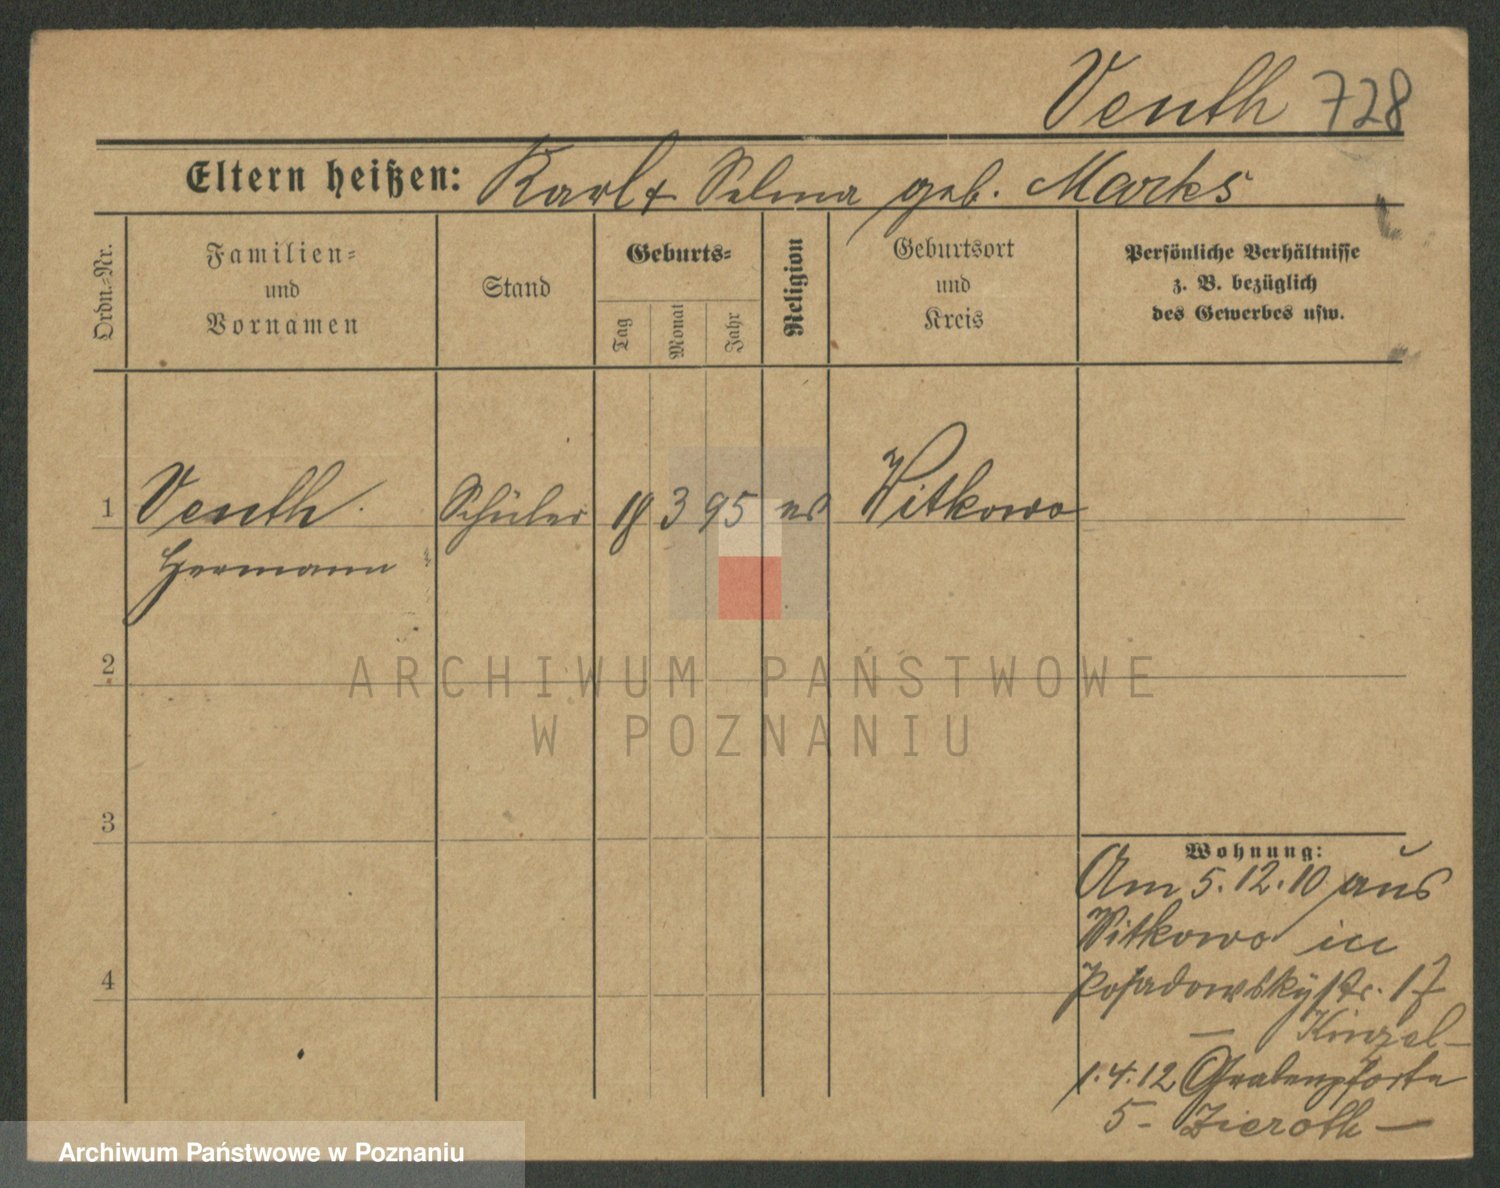 Venth 728
Eltern heißen: Karl & Selma geb. Marks
Ordn.-Nr.
Familien-
und
Vornamen
Stand
Geburts-
Tag
Monat
Jahr
Religion
Geburtsort
und
Kreis
Persönliche Verhältnisse
z. B. bezüglich
des Gewerbes usw.
1 Venth Schüler 18 3 95 ev Witkowo
Hermann
2
3
4
Wohnung:
Am 5.12.10 aus
Witkowo in
Posadowskystr. 17
— Kinzel —
1.4.12 Grabenpforte
5 - Zieroth —
ARCHIWUM PAŃSTWOWE
W POZNANIU
Archiwum Państwowe w Poznaniu